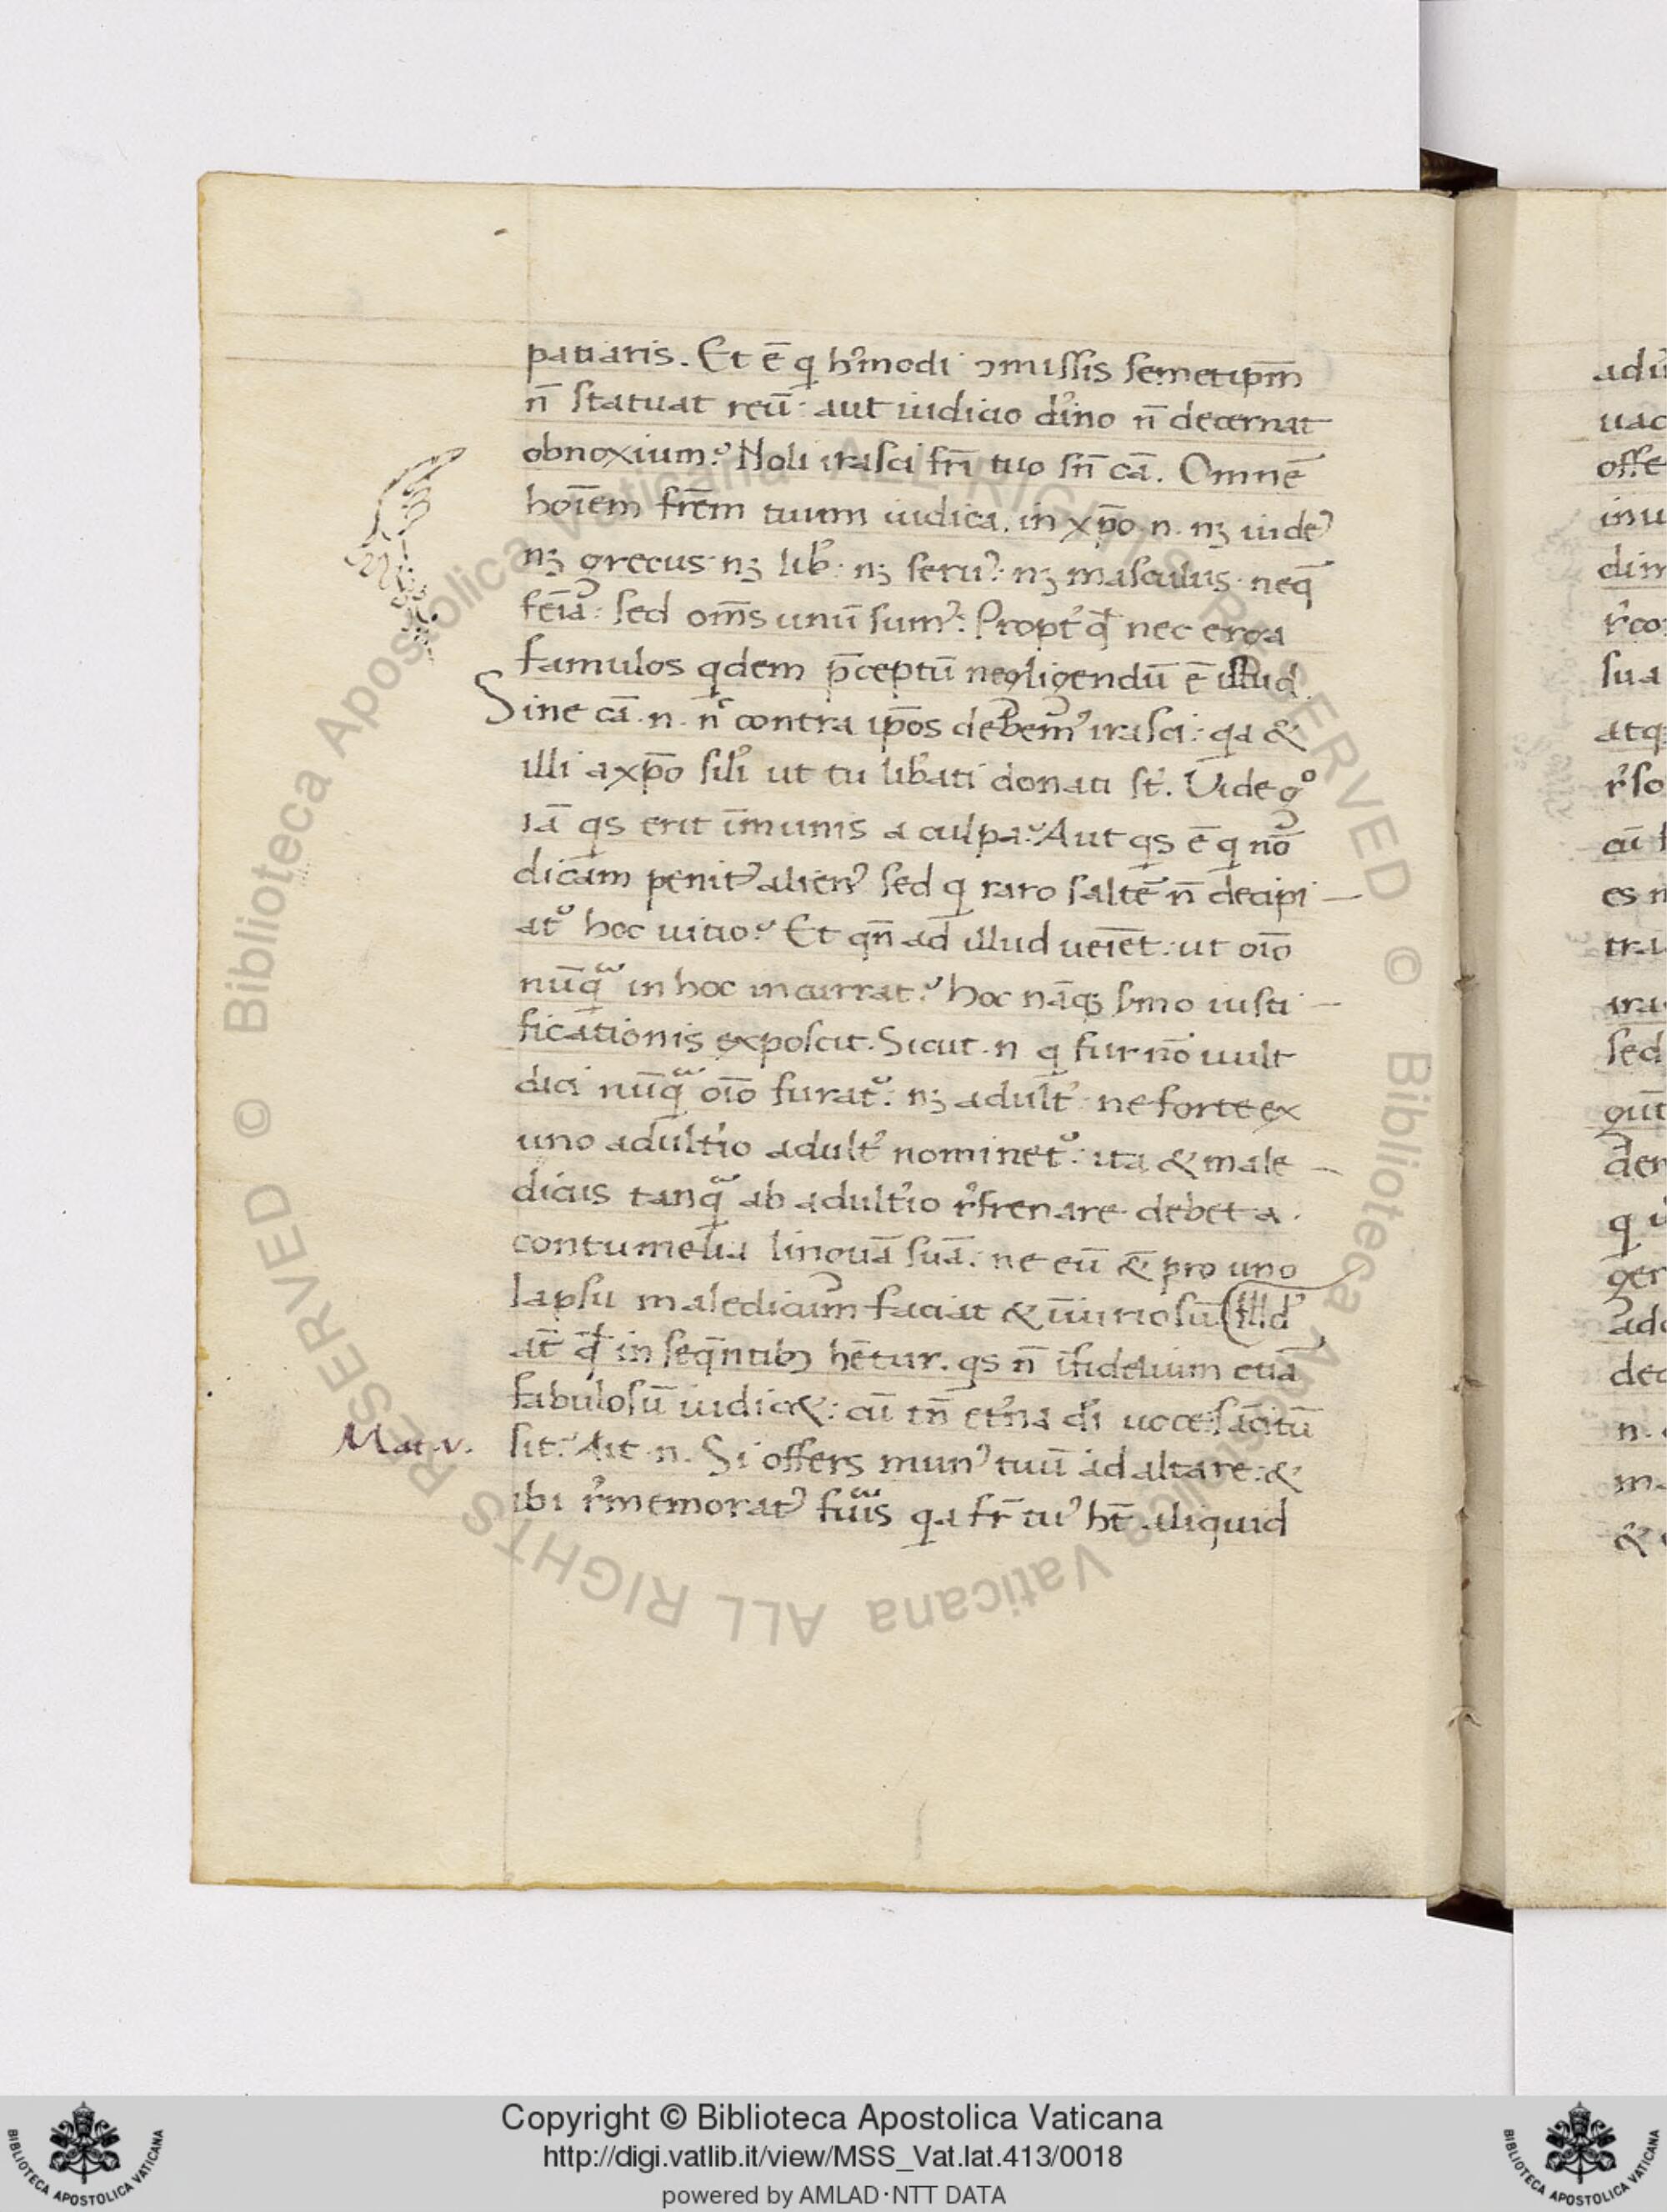 patiaris. Et ē q hꝰmodi ↄmissis semetipm̄
n̄ statuat reū: aut iudicio diꝰno n̄ decernat
obnoxium? Noli irasci fr̄i tuo sn̄ cā. Omnē
hoīem frēm tuum iudica. in xp̄o .n. nꝫ iudeꝰ
nꝫ grecus: nꝫ libꝰ: nꝫ seruꝰ: nꝫ masculus: neq̄
feīa: sed om̄s unū sumꝰ: Proptꝰ qđ nec erga
famulos qdem p̄ceptū negligendū ē illud.
Sine cā .n. nc̄ contra ip̄os debemꝰ irasci: qa &
illi a xp̄o silꝰi ut tu libꝰati donati st̄. Vide gͦ
iā qs erit īmunis a culpa? Aut qs ē q nō
dicam penitꝰ alienꝰ sed q raro saltē n̄ decipi
atᷣ hoc uitio? Et qn̄ ad illud ueīet: ut oīo
nūqᵃ in hoc incurrat? hoc nāqꝫ sꝰmo iusti
ficationis exposcit. Sicut .n. q fur nō uult
dici nūqᵃ oīo furatᷣ: nꝫ adultꝰ: ne forte ex
uno adultꝰio adultꝰ nominetᷣ: ita & male
dicus tanqᵃ ab adultꝰio rꝰfrenare debet a
contumelia linguā suā: ne eū & pro uno
lapsu maledicum faciat & īiuriosū. Illd'
at̄ qđ in seqn̄tibꝫ hētur. qs n̄ īfidelium etiā
fabulosū iudic&: cū tn̄ etꝰna dī uoce sācitū
Mat. v. sit? Ait .n. Si offers munꝰ tuū ad altare: &
ibi rꝰmemoratꝰ fuis qa fr̄ tuꝰ ht̄ aliquid
Copyright © Biblioteca Apostolica Vaticana
http://digi.vatlib.it/view/MSS_Vat.lat.413/0018
powered by AMLAD·NTT DATA